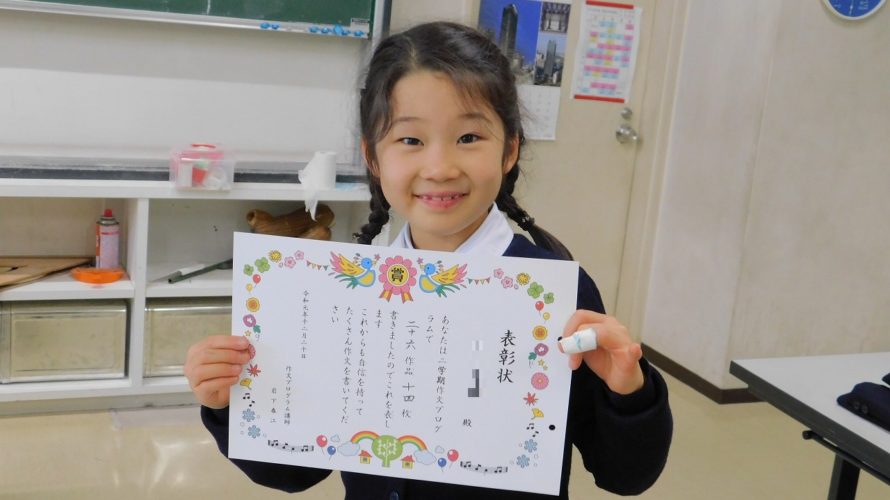 賞
表彰状
殿
あなたは二学期作文プログ
ラムで
二十六作品 十四枚
書きましたのでこれを表し
ます
これからも自信を持って
たくさん作文を書いてくだ
さい
令和元年十二月二十日
作文プログラム講師
岩下春江